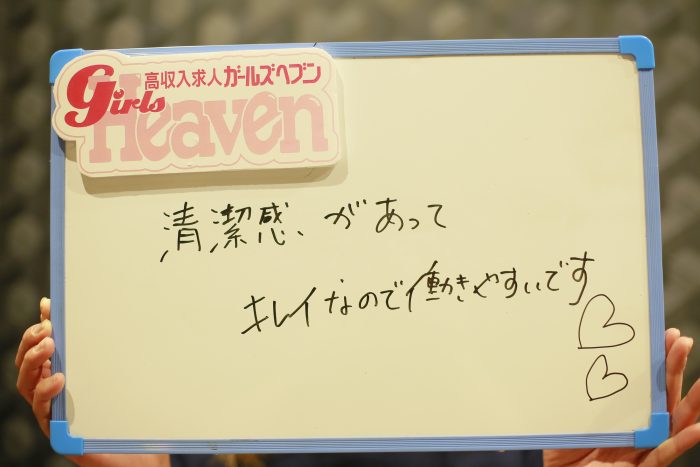 高収入求人ガールズヘブン
Girls
Heaven
清潔感があって
キレイなので働きやすいです